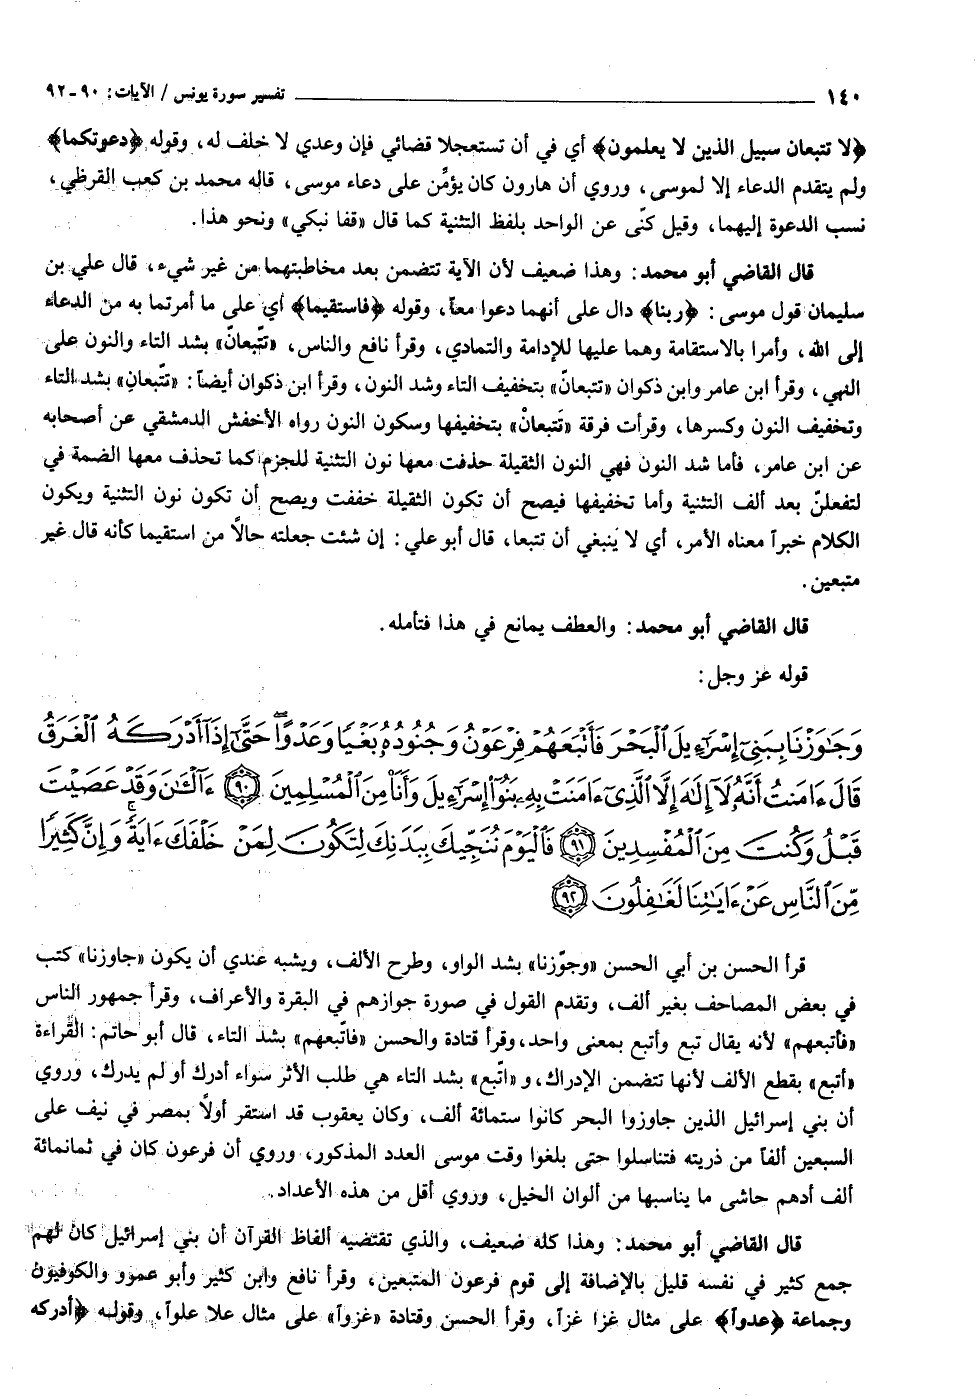 ١٤٠ تفسير سورة يونس / الآيات: ٩٠ - ٩٢
﴿لا تتبعان سبيل الذين لا يعلمون﴾ أي في أن تستعجلا قضائي فإن وعدي لا خلف له، وقوله ﴿دعوتكما﴾
ولم يتقدم الدعاء إلا لموسى، وروي أن هارون كان يؤمِّن على دعاء موسى، قاله محمد بن كعب القرظي،
نسب الدعوة إليهما، وقيل كنّى عن الواحد بلفظ التثنية كما قال «قفا نبكي» ونحو هذا.
قال القاضي أبو محمد: وهذا ضعيف لأن الآية تتضمن بعد مخاطبتهما من غير شيء، قال علي بن
سليمان قول موسى: ﴿ربنا﴾ دال على أنهما دعوا معاً، وقوله ﴿فاستقيما﴾ أي على ما أمرتما به من الدعاء
إلى الله، وأمرا بالاستقامة وهما عليها للإدامة والتمادي، وقرأ نافع والناس، «تتّبعانّ» بشد التاء والنون على
النهي، وقرأ ابن عامر وابن ذكوان «تتبعانّ» بتخفيف التاء وشد النون، وقرأ ابن ذكوان أيضاً: «تتّبعانِ» بشد التاء
وتخفيف النون وكسرها، وقرأت فرقة «تَتبعانْ» بتخفيفها وسكون النون رواه الأخفش الدمشقي عن أصحابه
عن ابن عامر، فأما شد النون فهي النون الثقيلة حذفت معها نون التثنية للجزم كما تحذف معها الضمة في
لتفعلنّ بعد ألف التثنية وأما تخفيفها فيصح أن تكون الثقيلة خففت ويصح أن تكون نون التثنية ويكون
الكلام خبراً معناه الأمر، أي لا يَنبغي أن تتبعا، قال أبو علي: إن شئت جعلته حالاً من استقيما كأنه قال غير
متبعين.
قال القاضي أبو محمد: والعطف يمانع في هذا فتأمله.
قوله عز وجل:
وَجَٰوَزْنَا بِبَنِىٓ إِسْرَٰٓءِيلَ ٱلْبَحْرَ فَأَتْبَعَهُمْ فِرْعَوْنُ وَجُنُودُهُۥ بَغْيًا وَعَدْوًا ۖ حَتَّىٰٓ إِذَآ أَدْرَكَهُ ٱلْغَرَقُ
قَالَ ءَامَنتُ أَنَّهُۥ لَآ إِلَٰهَ إِلَّا ٱلَّذِىٓ ءَامَنَتْ بِهِۦ بَنُوٓا۟ إِسْرَٰٓءِيلَ وَأَنَا۠ مِنَ ٱلْمُسْلِمِينَ ﴿٩٠﴾ ءَآلْـَٰٔنَ وَقَدْ عَصَيْتَ
قَبْلُ وَكُنتَ مِنَ ٱلْمُفْسِدِينَ ﴿٩١﴾ فَٱلْيَوْمَ نُنَجِّيكَ بِبَدَنِكَ لِتَكُونَ لِمَنْ خَلْفَكَ ءَايَةً ۚ وَإِنَّ كَثِيرًا
مِّنَ ٱلنَّاسِ عَنْ ءَايَٰتِنَا لَغَٰفِلُونَ ﴿٩٢﴾
قرأ الحسن بن أبي الحسن «وجوّزنا» بشد الواو، وطرح الألف، ويشبه عندي أن يكون «جاوزنا» كتب
في بعض المصاحف بغير ألف، وتقدم القول في صورة جوازهم في البقرة والأعراف، وقرأ جمهور الناس
«فأتبعهم» لأنه يقال تبع وأتبع بمعنى واحد، وقرأ قتادة والحسن «فاتّبعهم» بشد التاء، قال أبو حاتم: القراءة
«أتبع» بقطع الألف لأنها تتضمن الإدراك، و «اتّبع» بشد التاء هي طلب الأثر سواء أدرك أو لم يدرك، وروي
أن بني إسرائيل الذين جاوزوا البحر كانوا ستمائة ألف، وكان يعقوب قد استقر أولاً بمصر في نيف على
السبعين ألفاً من ذريته فتناسلوا حتى بلغوا وقت موسى العدد المذكور، وروي أن فرعون كان في ثمانمائة
ألف أدهم حاشى ما يناسبها من ألوان الخيل، وروي أقل من هذه الأعداد.
قال القاضي أبو محمد: وهذا كله ضعيف، والذي تقتضيه ألفاظ القرآن أن بني إسرائيل كان لهم
جمع كثير في نفسه قليل بالإضافة إلى قوم فرعون المتبعين، وقرأ نافع وابن كثير وأبو عمرو والكوفيون
وجماعة ﴿عدواً﴾ على مثال غزا غزاً، وقرأ الحسن وقتادة «غزواً» على مثال علا علواً، وقوله ﴿أدركه